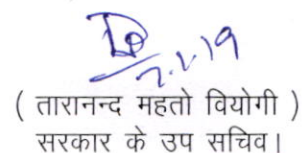 7.1.19
( तारानन्द महतो वियोगी )
सरकार के उप सचिव।